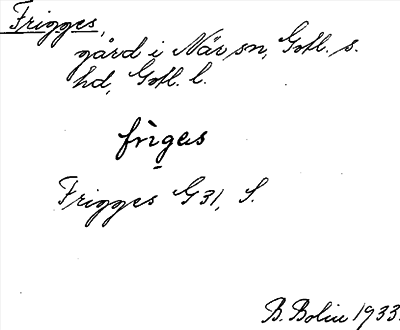 Frigges,
gård i När sn, Gotl. s.
hd, Gotl. l.
frìgas
Frigges G31, S.
B. Bolin 1933.